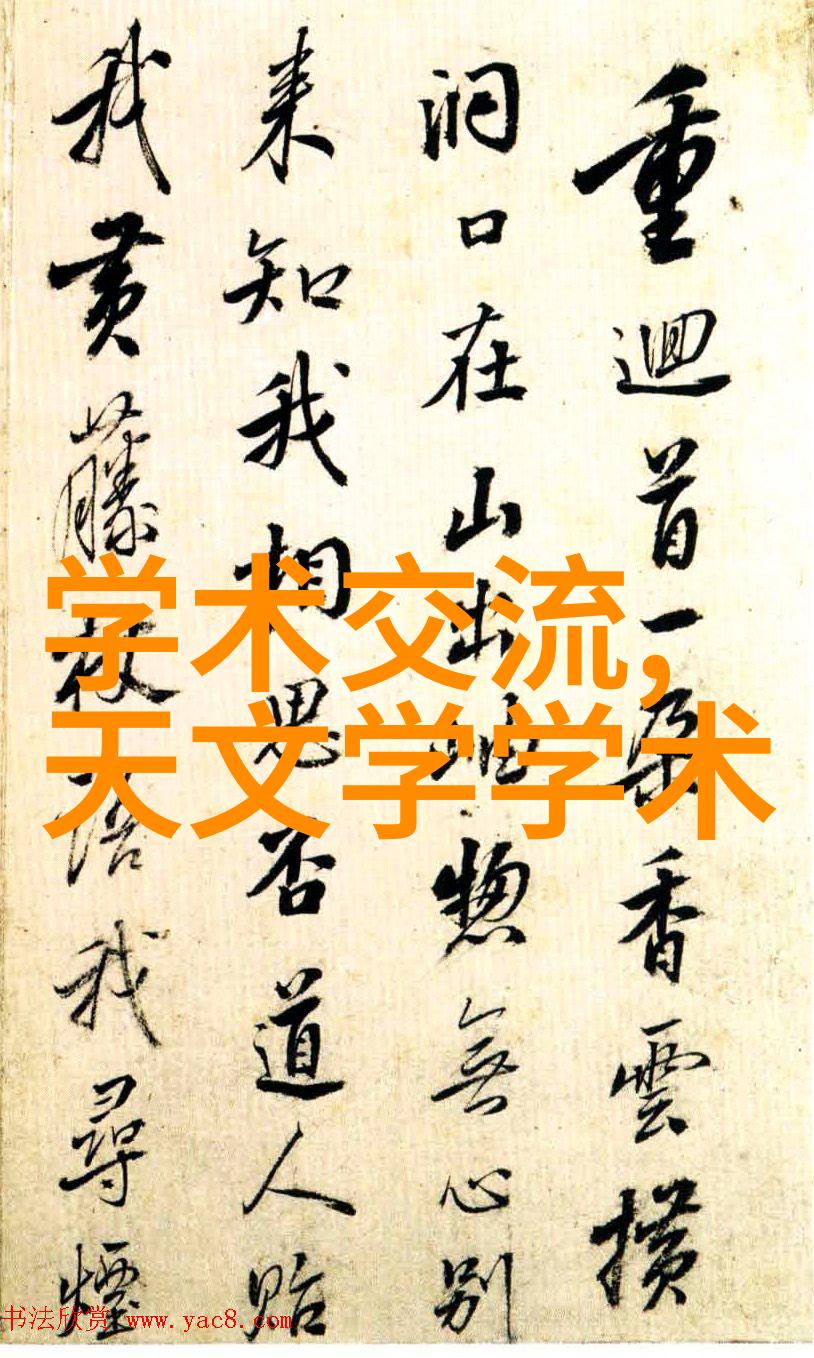 重迴首一朵香雲横
洞口在山出岫惣無心別
来知我相思否道人貽
我黄藤杖語我尋煙
学术交流,
天文学学术
书法欣赏 www.yac8.com